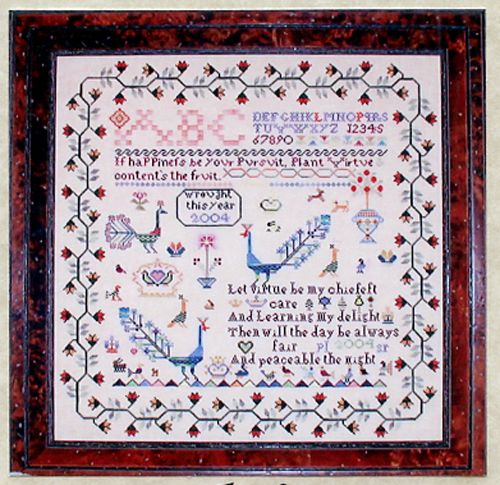 ABC
DEFGHIKLMNOPQRS
TUVWXYZ 12345
67890
If haPPineſs be your Pursuit, Plant Virtue
content's the fruit.
wrought
this year
2004
Let virtue be my chiefeſt
care
And Learning my delight
Then will the day be always
fair pl 2004 sr
And peaceable the night